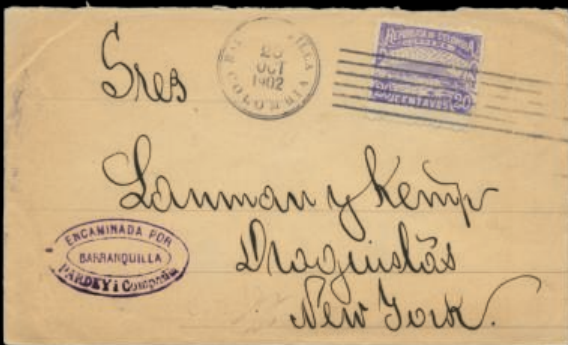 Sres
BARRANQUILLA
25
OCT
1902
COLOMBIA
REPUBLICA DE COLOMBIA
20 CENTAVOS 20
Lanman y Kemp
Droguistas
New York.
ENCAMINADA POR
BARRANQUILLA
PARDEY i Compañia